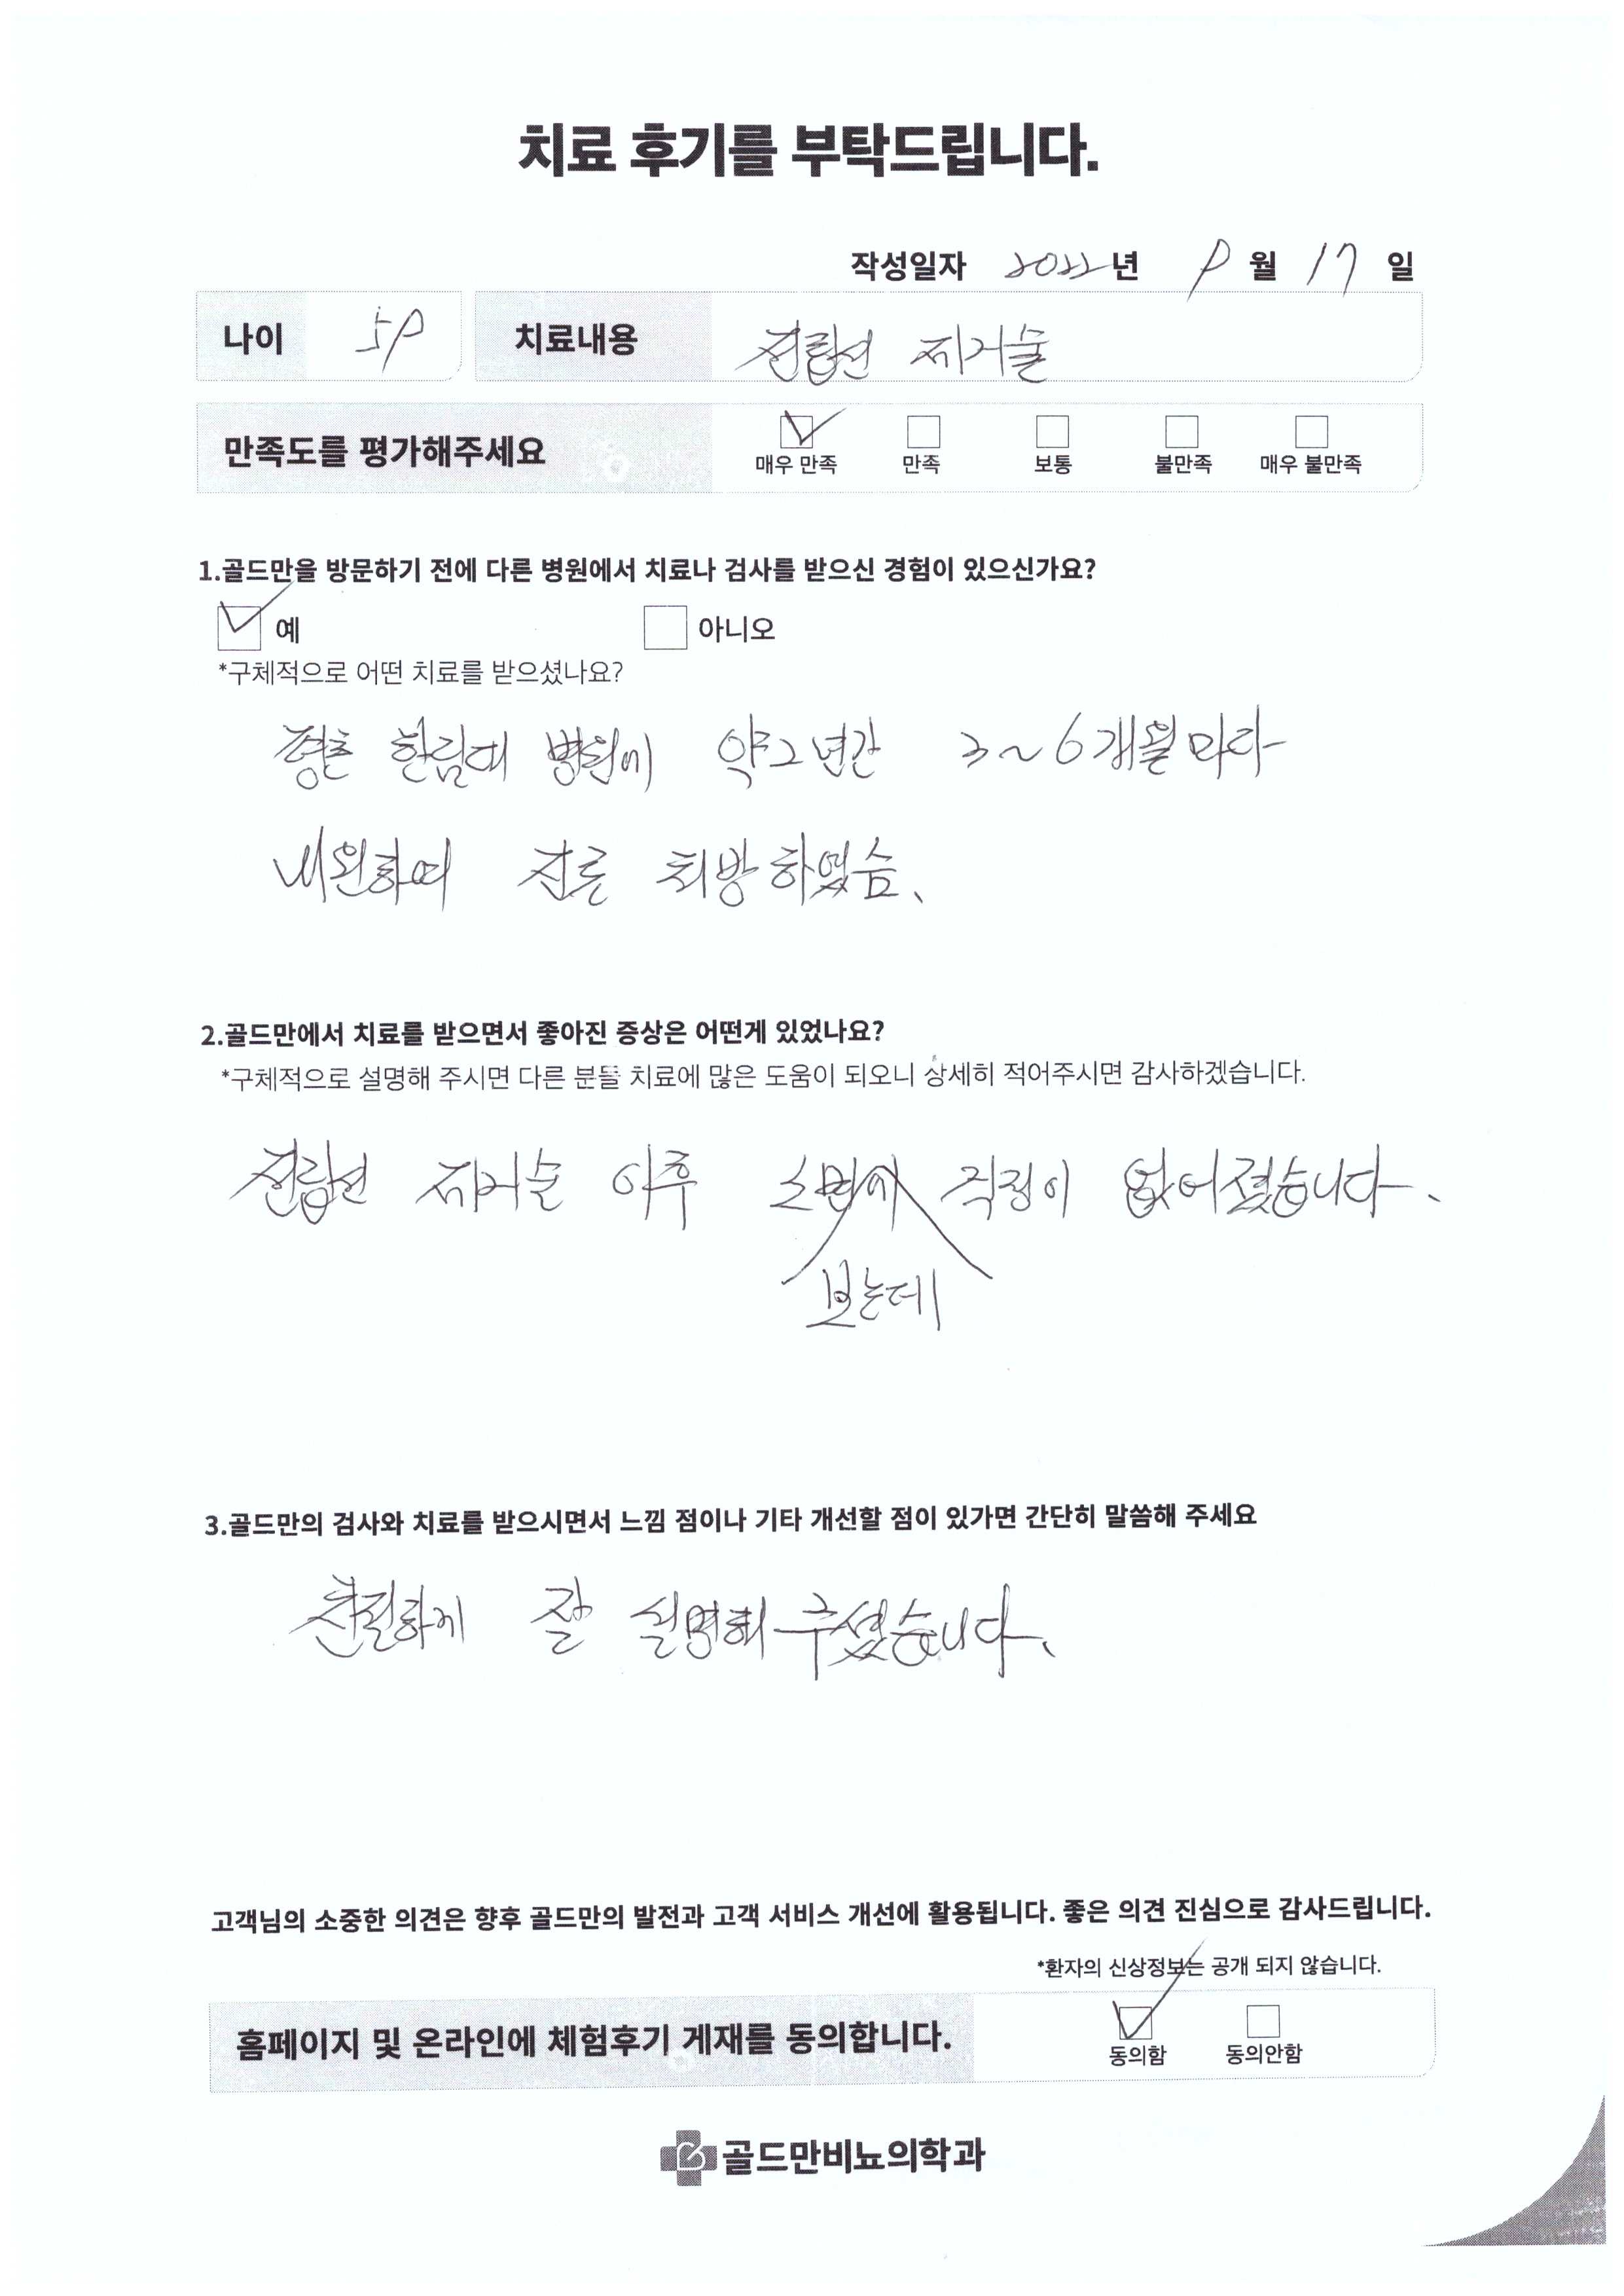 치료 후기를 부탁드립니다.
작성일자 2022년 8월 17일
나이 58 치료내용 전립선 제거술
만족도를 평가해주세요 매우 만족 만족 보통 불만족 매우 불만족
1.골드만을 방문하기 전에 다른 병원에서 치료나 검사를 받으신 경험이 있으신가요?
예 아니오
*구체적으로 어떤 치료를 받으셨나요?
평촌 한림대 병원에 약2년간 3~6개월마다
내원하여 진료 처방하였슴.
2.골드만에서 치료를 받으면서 좋아진 증상은 어떤게 있었나요?
*구체적으로 설명해 주시면 다른 분들 치료에 많은 도움이 되오니 상세히 적어주시면 감사하겠습니다.
전립선 제거술 이후 소변에 걱정이 없어졌습니다.
보는데
3.골드만의 검사와 치료를 받으시면서 느낌 점이나 기타 개선할 점이 있가면 간단히 말씀해 주세요
친절하게 잘 설명해 주셨습니다.
고객님의 소중한 의견은 향후 골드만의 발전과 고객 서비스 개선에 활용됩니다. 좋은 의견 진심으로 감사드립니다.
*환자의 신상정보는 공개 되지 않습니다.
홈페이지 및 온라인에 체험후기 게재를 동의합니다. 동의함 동의안함
골드만비뇨의학과